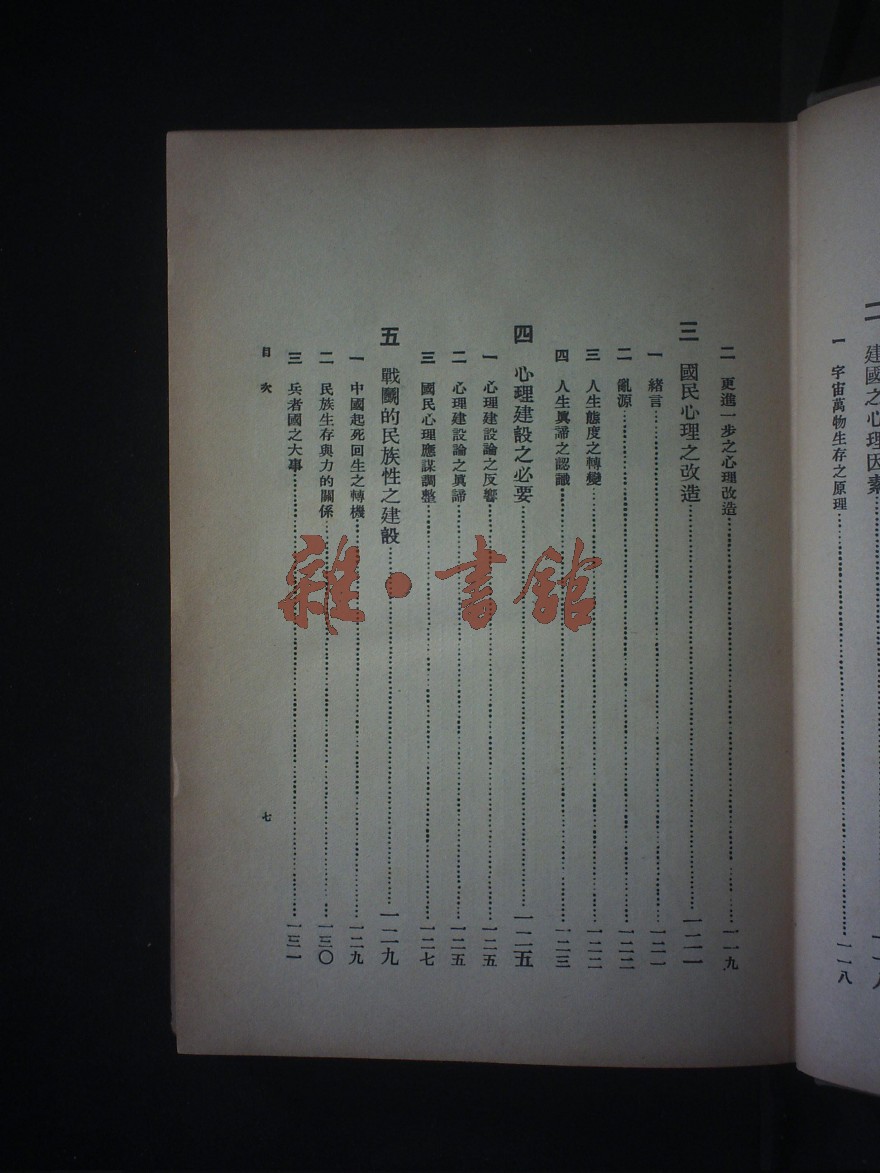 二 建國之心理因素……一一八
一 宇宙萬物生存之原理……一一八
二 更進一步之心理改造……一一九
三 國民心理之改造……一二一
一 緒言……一二一
二 亂源……一二二
三 人生態度之轉變……一二二
四 人生眞諦之認識……一二三
四 心理建設之必要……一二五
一 心理建設論之反響……一二五
二 心理建設論之眞諦……一二五
三 國民心理應謀調整……一二七
五 戰鬭的民族性之建設……一二九
一 中國起死回生之轉機……一二九
二 民族生存與力的關係……一三〇
三 兵者國之大事……一三一
目次
七
雜·書館